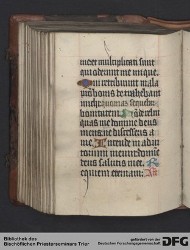 me et multiplicati sunt
qui oderunt me inique.
Qui retribuunt mala
pro bonis detrahebant
michi quoniam sequebar
bonitatem Ne dere
quas me domine deus
meus ne discesseris a
me Intende in adiu
torium meum domine
deus salutis mee
Requiem eternam
Bibliothek des
Bischöflichen Priesterseminars Trier
gefördert von der
Deutschen Forschungsgemeinschaft
DFG